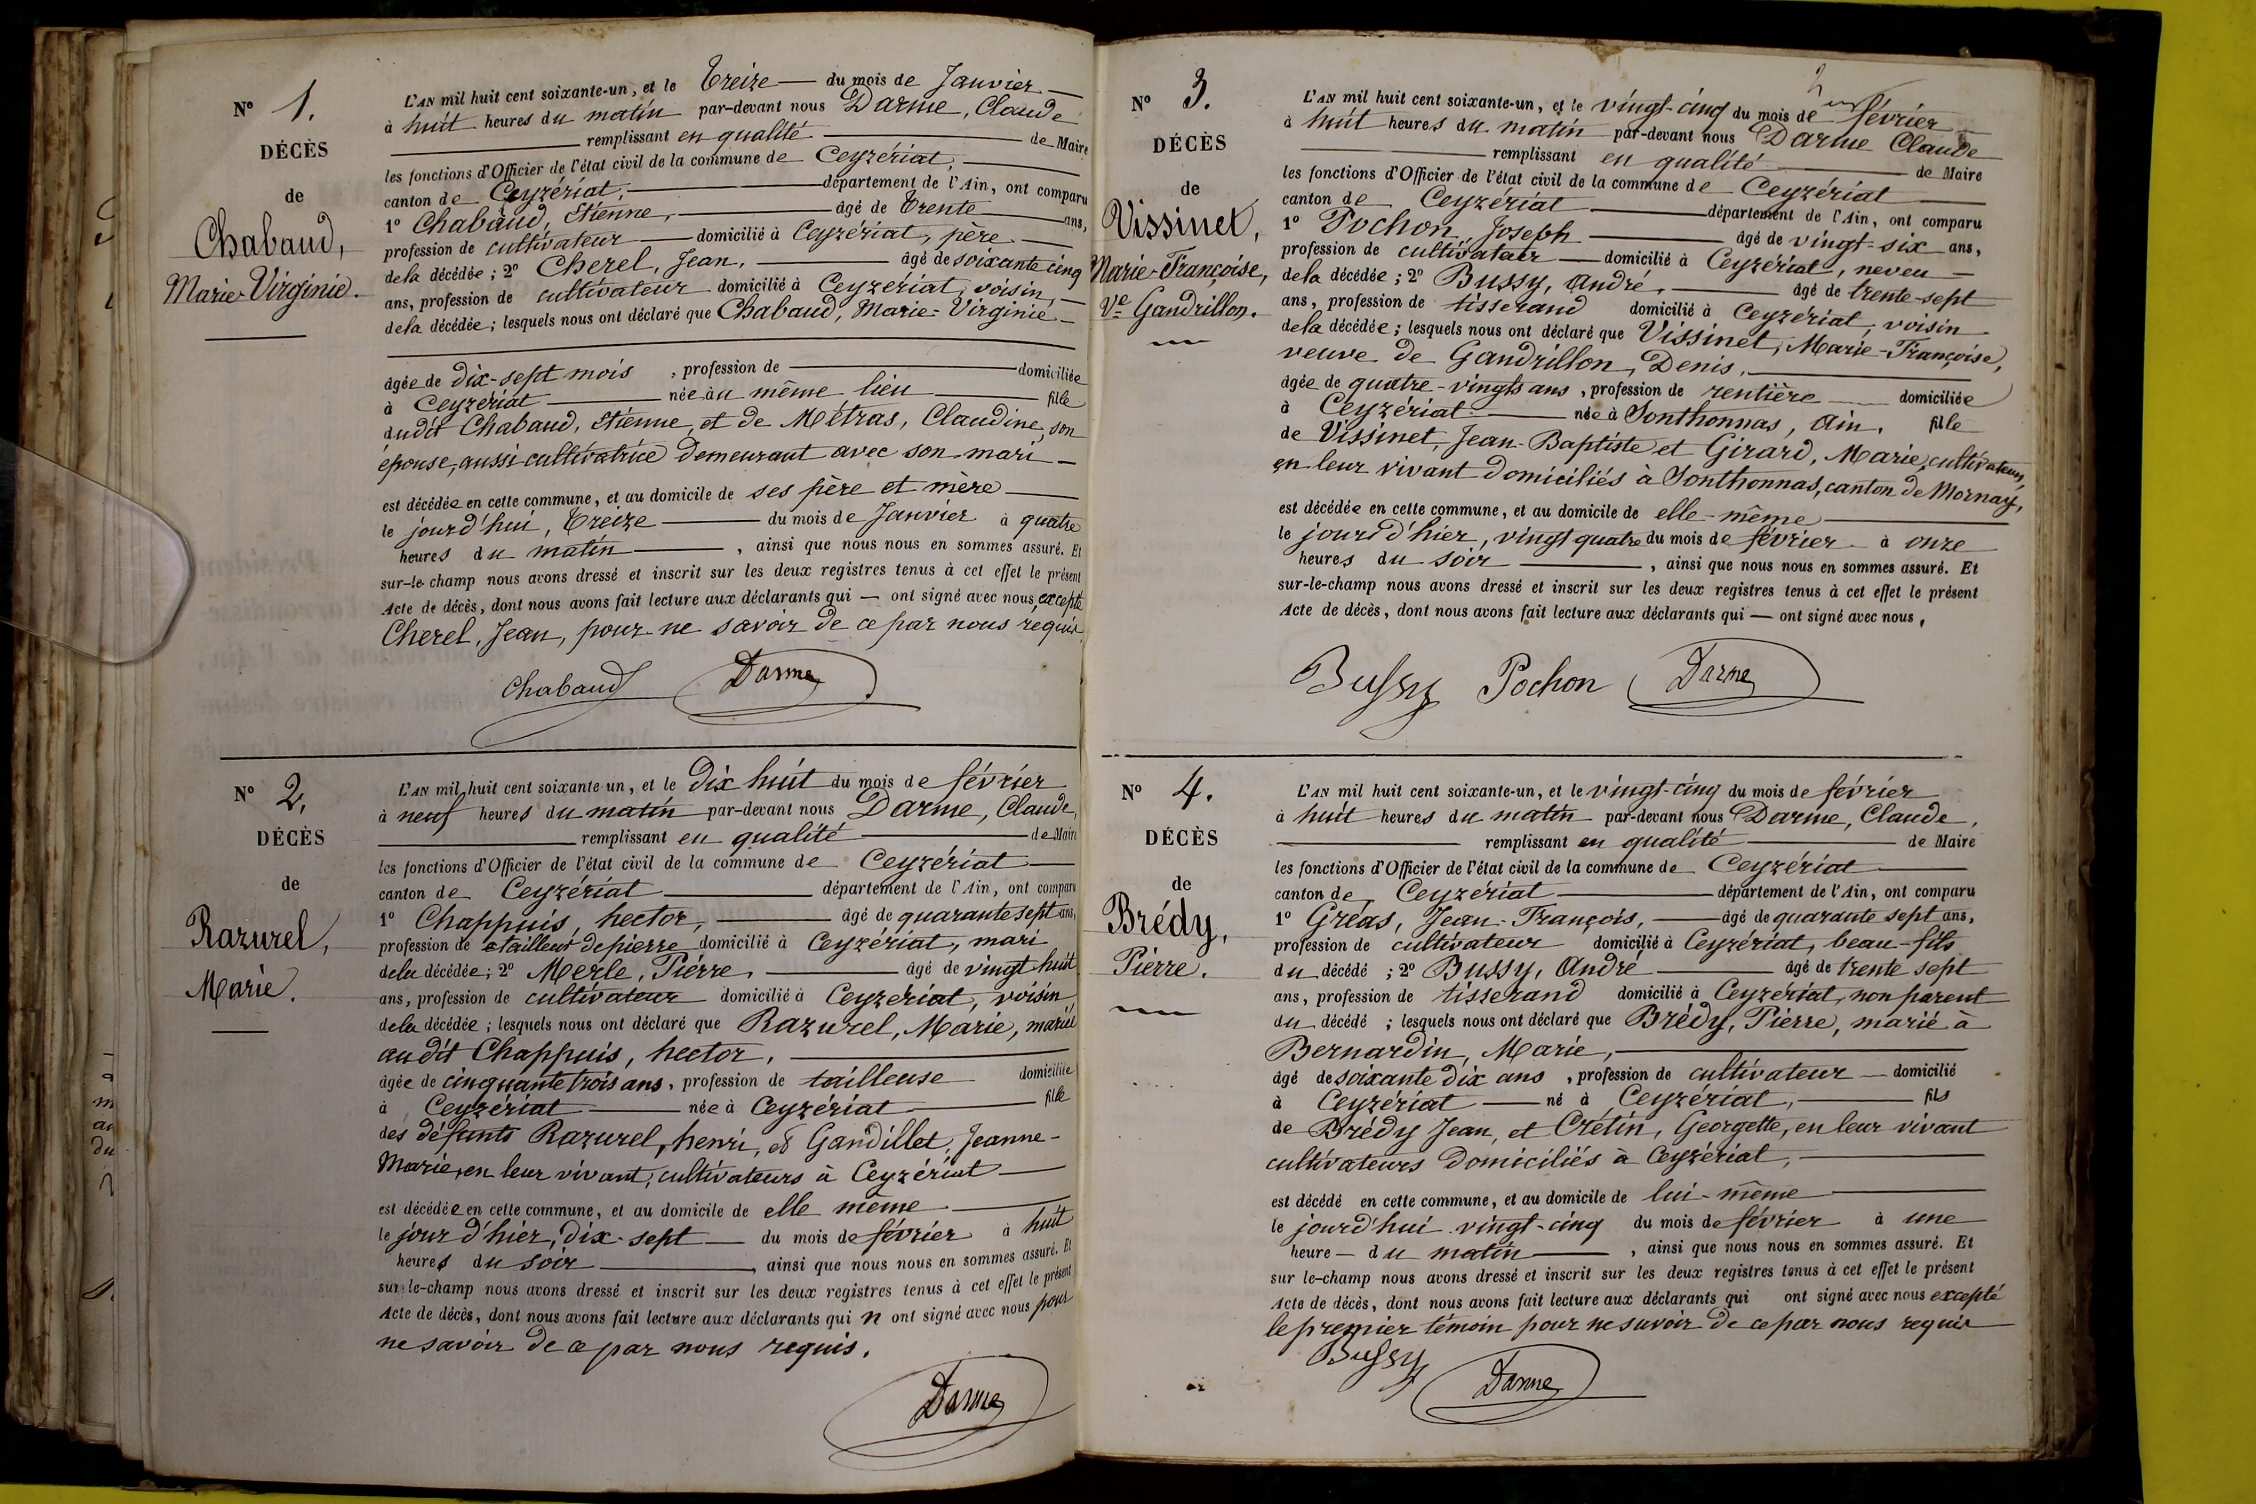 N° 1.
DÉCÈS
de
Chabaud,
Marie-Virginie.
L'AN mil huit cent soixante-un, et le Treize — du mois de Janvier —
à huit heures du matin par-devant nous Darme, Claude
remplissant en qualité — de Maire
les fonctions d'Officier de l'état civil de la commune de Ceyzériat,
canton de Ceyzériat, — département de l'Ain, ont comparu
1° Chabaud, Etienne, — âgé de Trente ans,
profession de cultivateur — domicilié à Ceyzériat, père —
de la décédée ; 2° Cherel, Jean, — âgé de soixante cinq
ans, profession de cultivateur domicilié à Ceyzériat, voisin, —
de la décédée ; lesquels nous ont déclaré que Chabaud, Marie-Virginie —
âgée de dix-sept mois , profession de — domiciliée
à Ceyzériat — née au même lieu — fille
dudit Chabaud, Etienne, et de Métras, Claudine, son
épouse, aussi cultivatrice demeurant avec son mari —
est décédée en cette commune, et au domicile de ses père et mère —
le jourd'hui, Treize — du mois de Janvier à quatre
heures du matin — , ainsi que nous nous en sommes assuré. Et
sur-le-champ nous avons dressé et inscrit sur les deux registres tenus à cet effet le présent
Acte de décès, dont nous avons fait lecture aux déclarants qui — ont signé avec nous, excepté
Cherel, Jean, pour ne savoir de ce par nous requis.
Chabaud Darme
N° 2.
DÉCÈS
de
Razurel,
Marie.
L'AN mil huit cent soixante-un, et le Dix huit du mois de février
à neuf heures du matin par-devant nous Darme, Claude,
remplissant en qualité — de Maire
les fonctions d'Officier de l'état civil de la commune de Ceyzériat —
canton de Ceyzériat — département de l'Ain, ont comparu
1° Chappuis, hector, — âgé de quarante sept ans,
profession de tailleur de pierre domicilié à Ceyzériat, mari
de la décédée ; 2° Merle, Pierre, — âgé de vingt huit
ans, profession de cultivateur domicilié à Ceyzériat, voisin,
de la décédée ; lesquels nous ont déclaré que Razurel, Marie, mariée
audit Chappuis, hector, —
âgée de cinquante trois ans, profession de tailleuse domiciliée
à Ceyzériat — née à Ceyzériat — fille
des défunts Razurel, henri, et Gandillet, Jeanne-
Marie, en leur vivant, cultivateurs à Ceyzériat —
est décédée en cette commune, et au domicile de elle même —
le jour d'hier, dix-sept — du mois de février à huit
heures du soir — , ainsi que nous nous en sommes assuré. Et
sur-le-champ nous avons dressé et inscrit sur les deux registres tenus à cet effet le présent
Acte de décès, dont nous avons fait lecture aux déclarants qui n ont signé avec nous pour
ne savoir de ce par nous requis.
Darme
N° 3.
DÉCÈS
de
Vissinet,
Marie-Françoise,
Ve Gandrillon.
L'AN mil huit cent soixante-un, et le vingt-cinq du mois de février —
à huit heures du matin par-devant nous Darme Claude
remplissant en qualité — de Maire
les fonctions d'Officier de l'état civil de la commune de Ceyzériat —
canton de Ceyzériat — département de l'Ain, ont comparu
1° Pochon, Joseph — âgé de vingt-six ans,
profession de cultivateur — domicilié à Ceyzériat, neveu —
de la décédée ; 2° Bussy, André, — âgé de trente-sept
ans, profession de tisserand domicilié à Ceyzériat, voisin
de la décédée ; lesquels nous ont déclaré que Vissinet, Marie-Françoise,
veuve de Gandrillon, Denis, —
âgée de quatre-vingts ans, profession de rentière — domiciliée
à Ceyzériat — née à Sonthonnas, Ain, fille
de Vissinet, Jean-Baptiste et Girard, Marie, cultivateurs,
en leur vivant domiciliés à Sonthonnas, canton de Mornay,
est décédée en cette commune, et au domicile de elle-même —
le jour d'hier, vingt quatre du mois de février à onze
heures du soir — , ainsi que nous nous en sommes assuré. Et
sur-le-champ nous avons dressé et inscrit sur les deux registres tenus à cet effet le présent
Acte de décès, dont nous avons fait lecture aux déclarants qui — ont signé avec nous,
Bussy Pochon Darme
N° 4.
DÉCÈS
de
Brédy,
Pierre.
L'AN mil huit cent soixante-un, et le vingt-cinq du mois de février
à huit heures du matin par-devant nous Darme, Claude,
remplissant en qualité — de Maire
les fonctions d'Officier de l'état civil de la commune de Ceyzériat —
canton de Ceyzériat — département de l'Ain, ont comparu
1° Gréas, Jean-François, — âgé de quarante sept ans,
profession de cultivateur domicilié à Ceyzériat, beau-fils
du décédé ; 2° Bussy, André — âgé de trente sept
ans, profession de tisserand domicilié à Ceyzériat, non parent
du décédé ; lesquels nous ont déclaré que Brédy, Pierre, marié à
Bernardin, Marie, —
âgé de soixante dix ans , profession de cultivateur — domicilié
à Ceyzériat — né à Ceyzériat, — fils
de Brédy Jean, et Crétin, Georgette, en leur vivant
cultivateurs domiciliés à Ceyzériat, —
est décédé en cette commune, et au domicile de lui-même —
le jourd'hui vingt-cinq du mois de février à une
heure — du matin — , ainsi que nous nous en sommes assuré. Et
sur le-champ nous avons dressé et inscrit sur les deux registres tenus à cet effet le présent
Acte de décès, dont nous avons fait lecture aux déclarants qui ont signé avec nous excepté
le premier témoin pour ne savoir de ce par nous requis
Bussy Darme